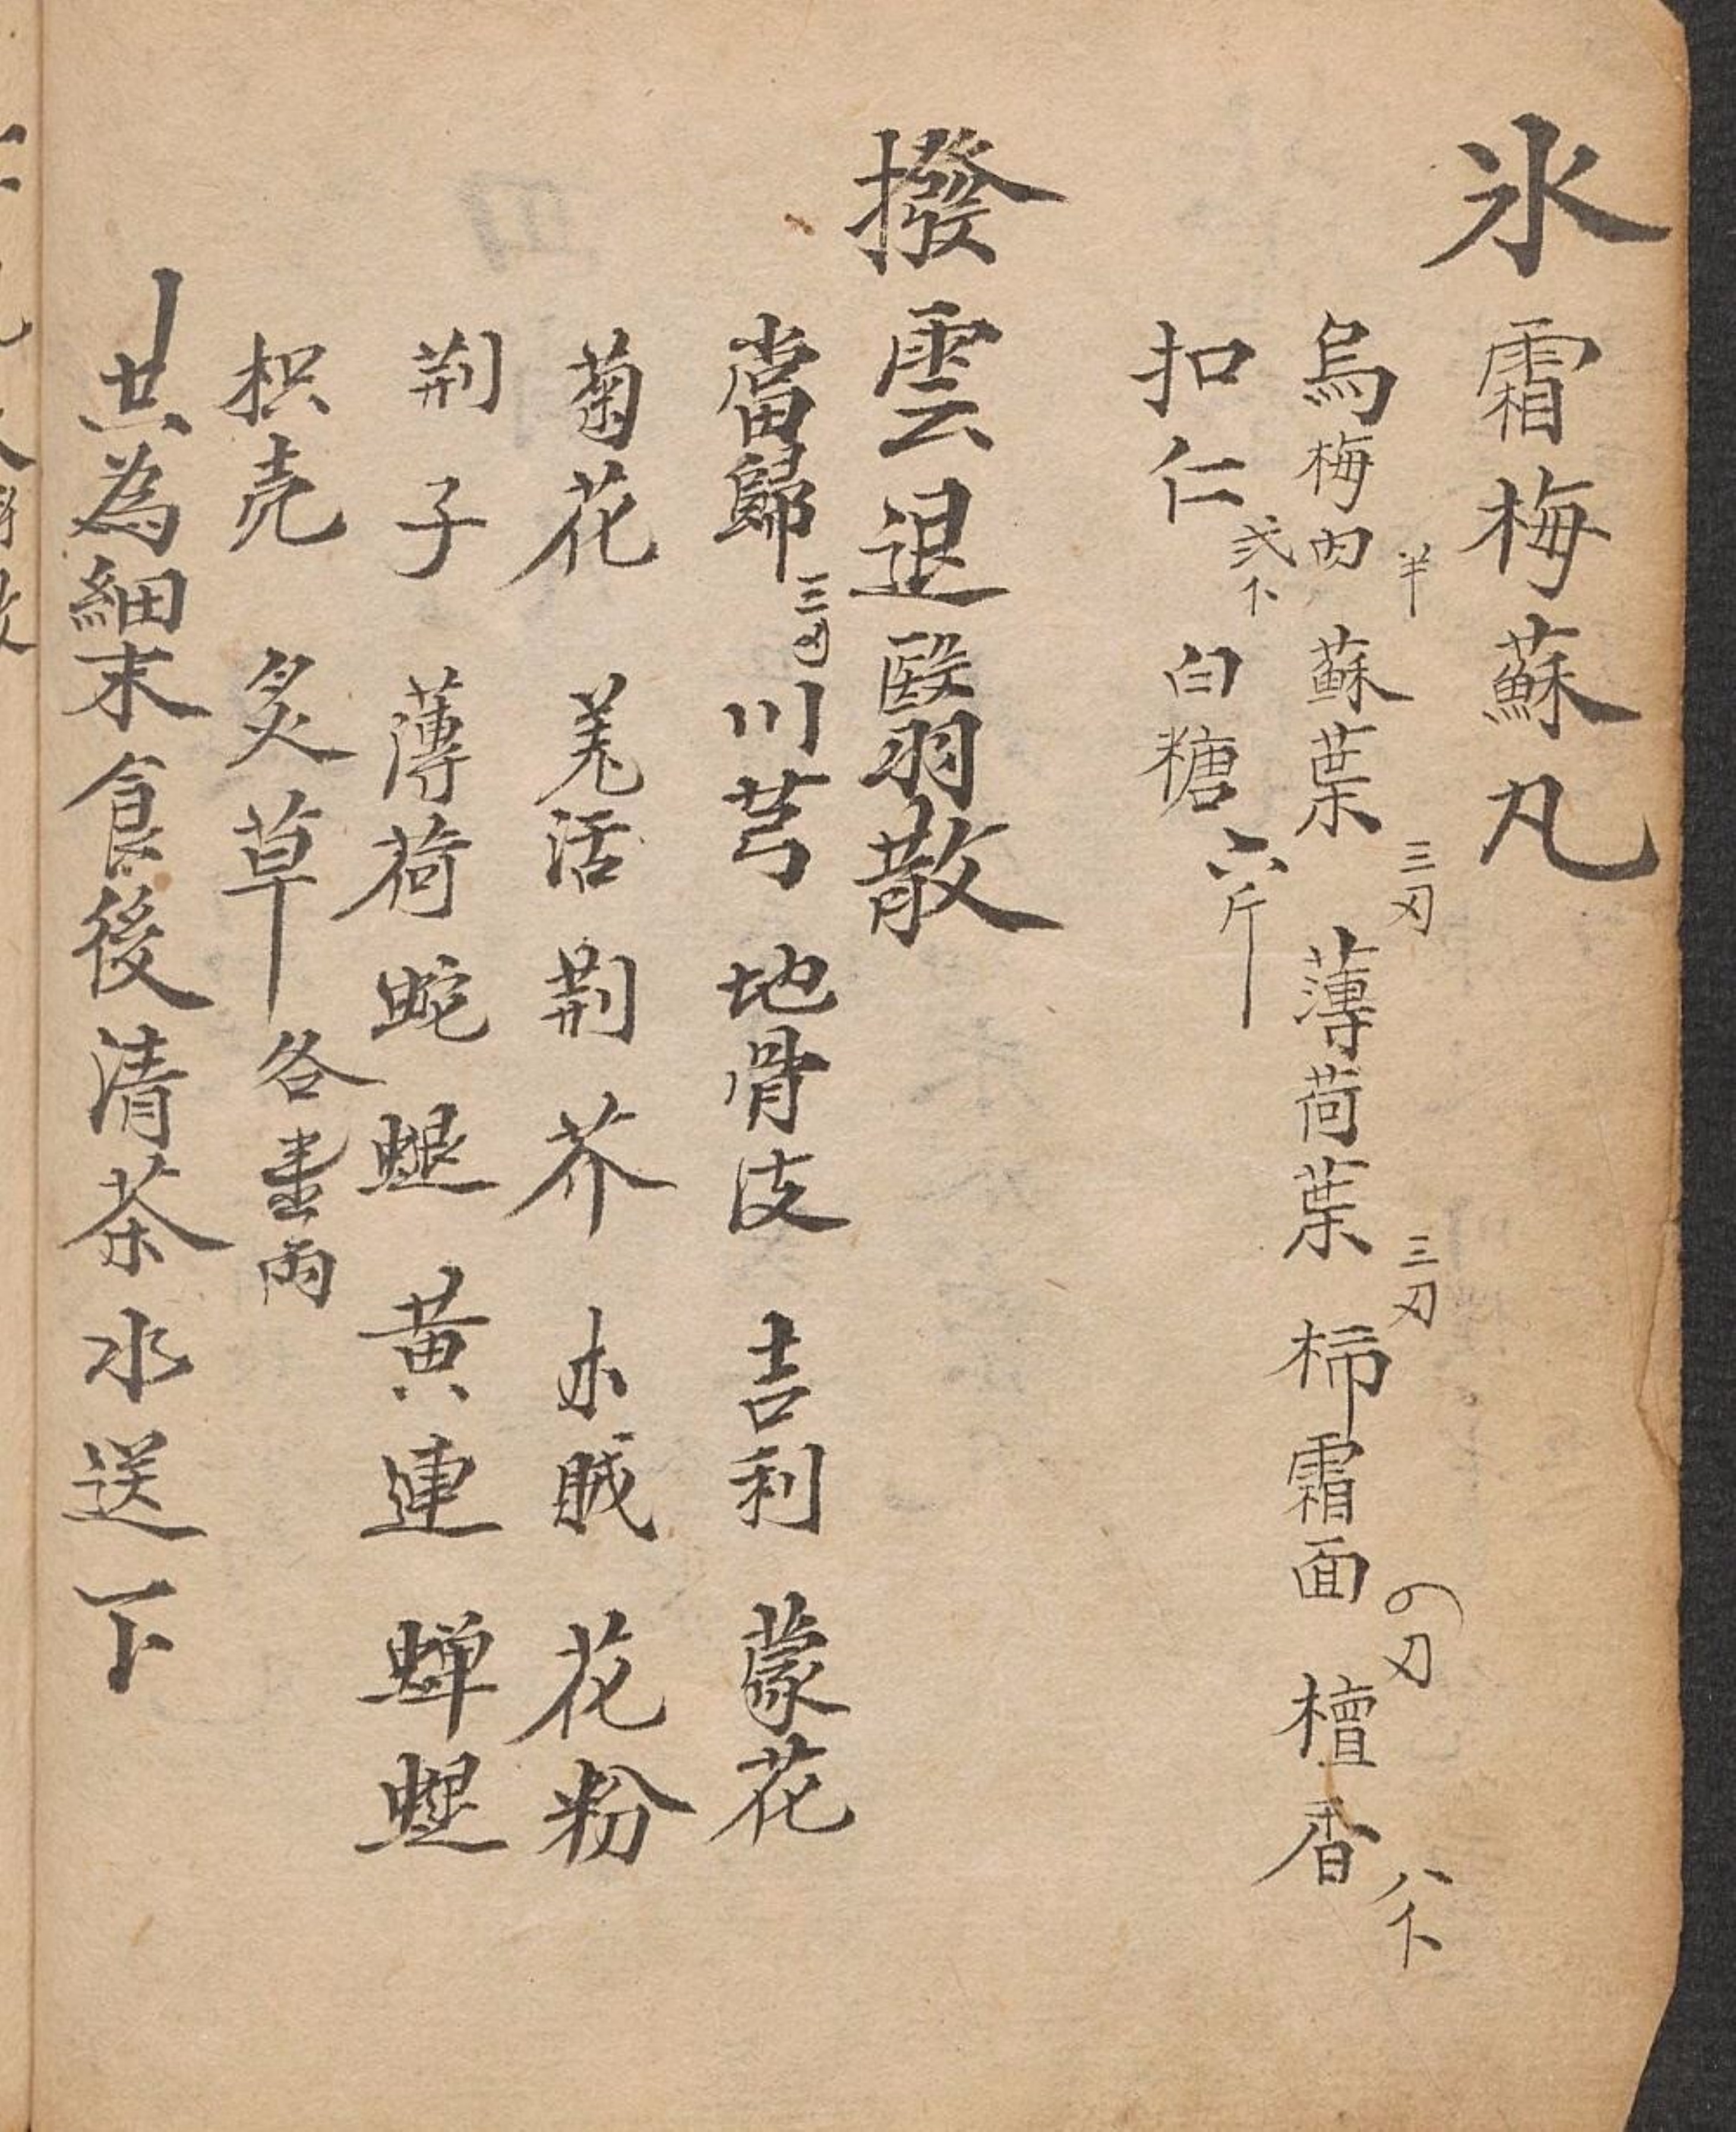 氷霜梅蘇丸
烏梅肉半蘇葉三刃薄荷葉三刃柿霜面刃檀香八
扣仁弍白糖六斤
撥雲退翳散
當歸三川芎地骨皮吉利蒙花
菊花羗活荆芥木賊花粉
荆子薄荷蛇蜕黄連蝉蜕
枳壳炙草各壹兩
共為細末食後清茶水送下